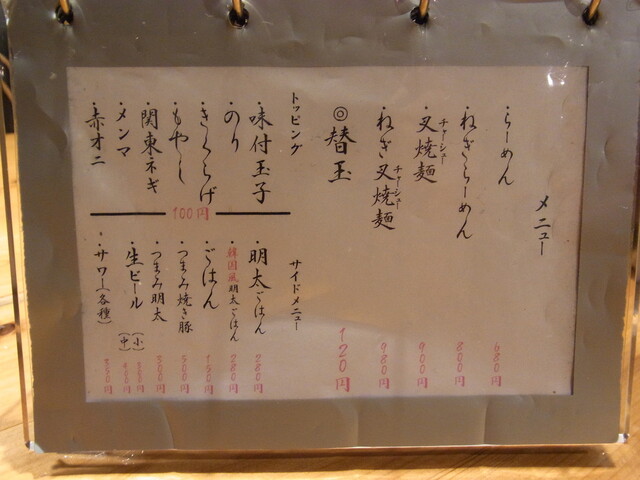 メニュー
・らーめん 680円
・ねぎらーめん 800円
・叉焼麺 チャーシュー 900円
・ねぎ叉焼麺 チャーシュー 980円
◎替玉 120円
トッピング
・味付玉子
・のり
・きくらげ
・もやし
・関東ネギ
・メンマ
・赤オニ
100円
サイドメニュー
・明太ごはん 280円
・韓国風明太ごはん 280円
・ごはん 150円
・つまみ焼き豚 500円
・つまみ明太 300円
・生ビール (小) (中)
・サワー(各種)